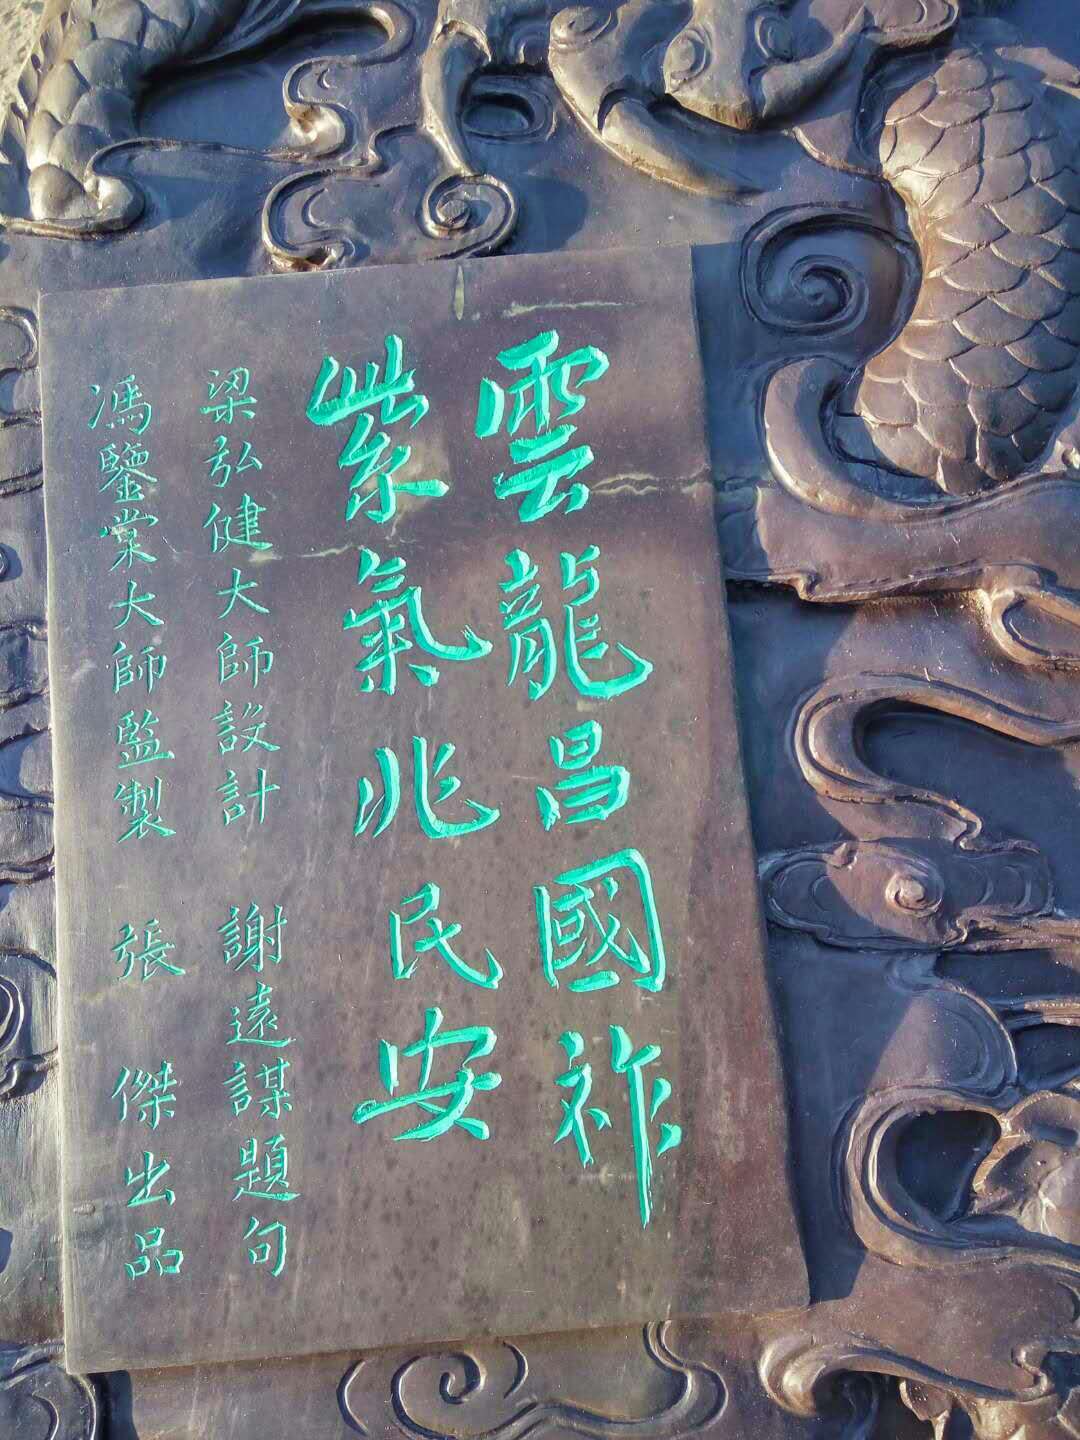 雲龍昌國祚
紫氣兆民安
梁弘健大師設計 謝遠謀題句
馮鑒棠大師監製 張 傑出品